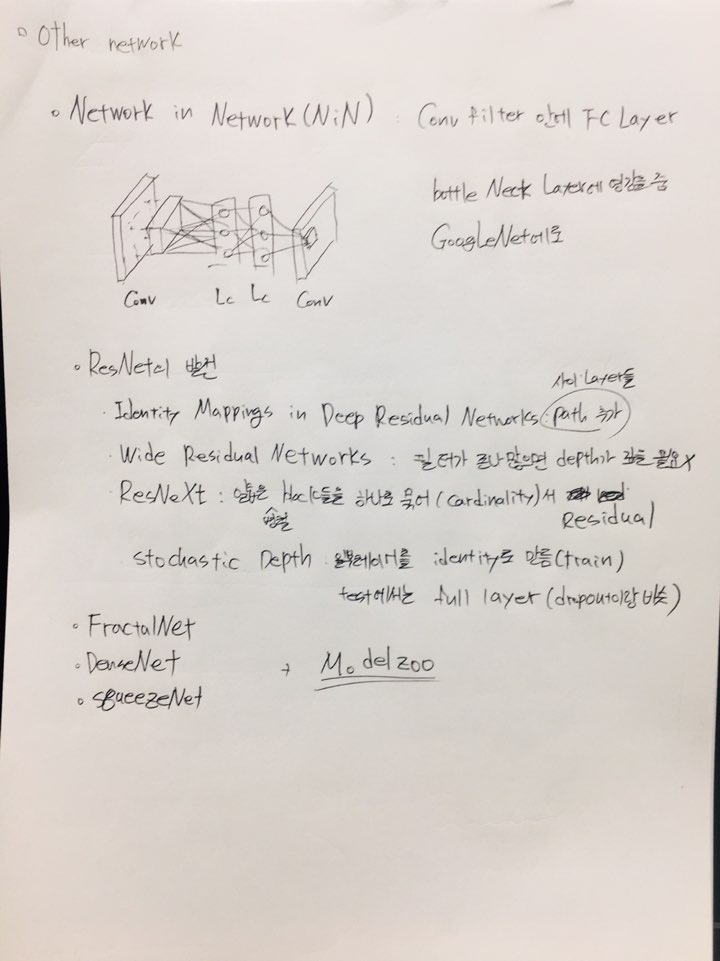 Other network
Network in Network (NiN) : Conv filter 안에 FC Layer
bottle Neck Layer에 영감을 줌
GoogLeNet에도
Conv Lc Lc Conv
ResNet의 발전
사이 Layer들
Identity Mappings in Deep Residual Networks : path 추가
Wide Residual Networks : 필터가 존나 많으면 depth가 깊을 필요X
ResNeXt : 얇은 block들을 하나로 묶어 (cardinality)서
병렬
Residual
stochastic Depth 일부레이어를 identity로 만듦 (train)
test에서는 full layer (dropout이랑 비슷)
FractalNet
DenseNet + Model zoo
sqeezeNet